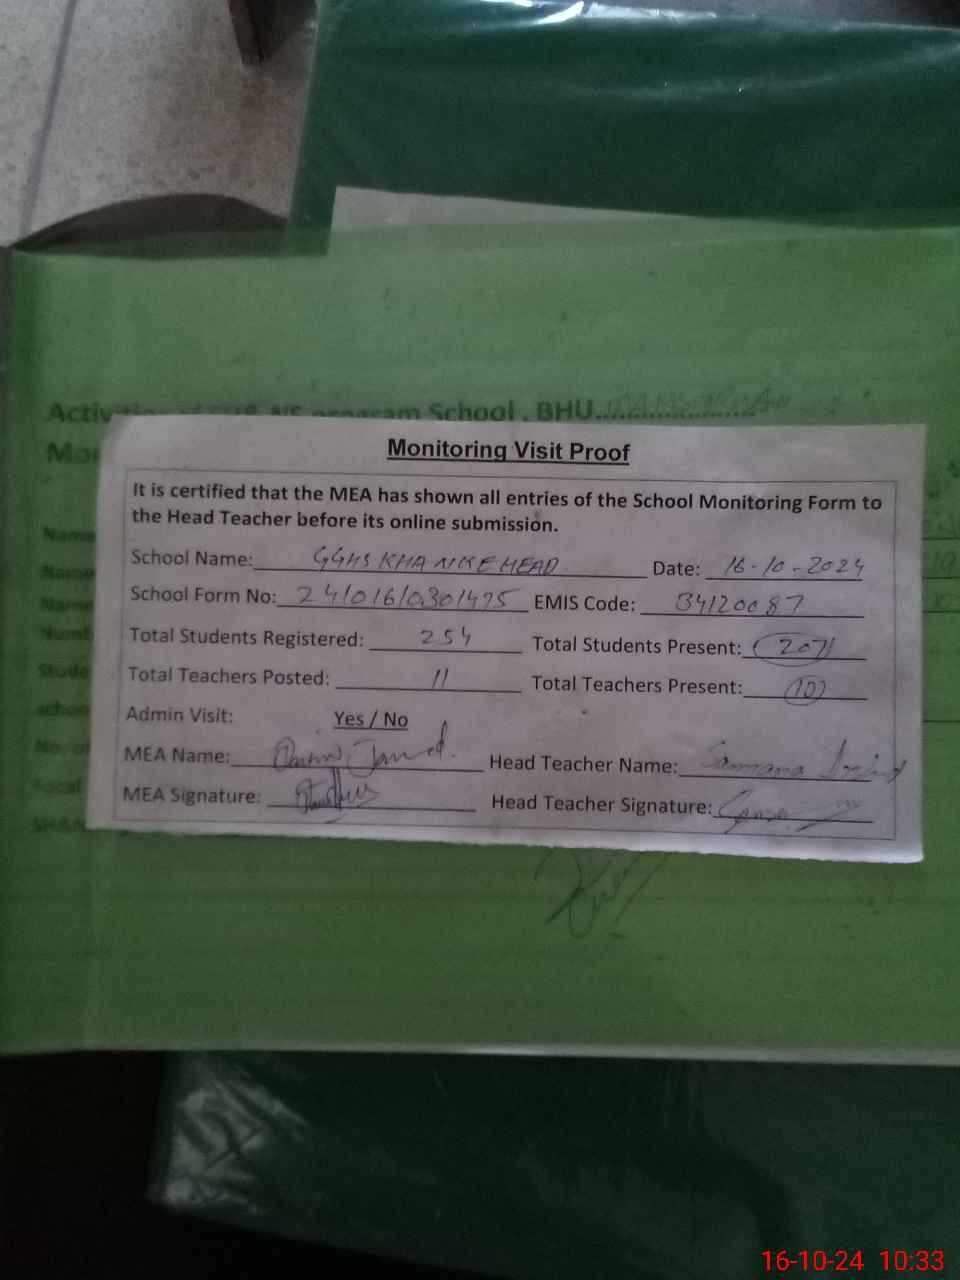 program School , BHU
Monitoring Visit Proof
It is certified that the MEA has shown all entries of the School Monitoring Form to
the Head Teacher before its online submission.
School Name: GGHS KHANKE HEAD Date: 16-10-2024
School Form No: EMIS Code: 34120087
Total Students Registered: 254 Total Students Present: 207
Total Teachers Posted: 11 Total Teachers Present: 10
Admin Visit: Yes / No
MEA Name: Head Teacher Name:
MEA Signature: Head Teacher Signature:
16-10-24 10:33